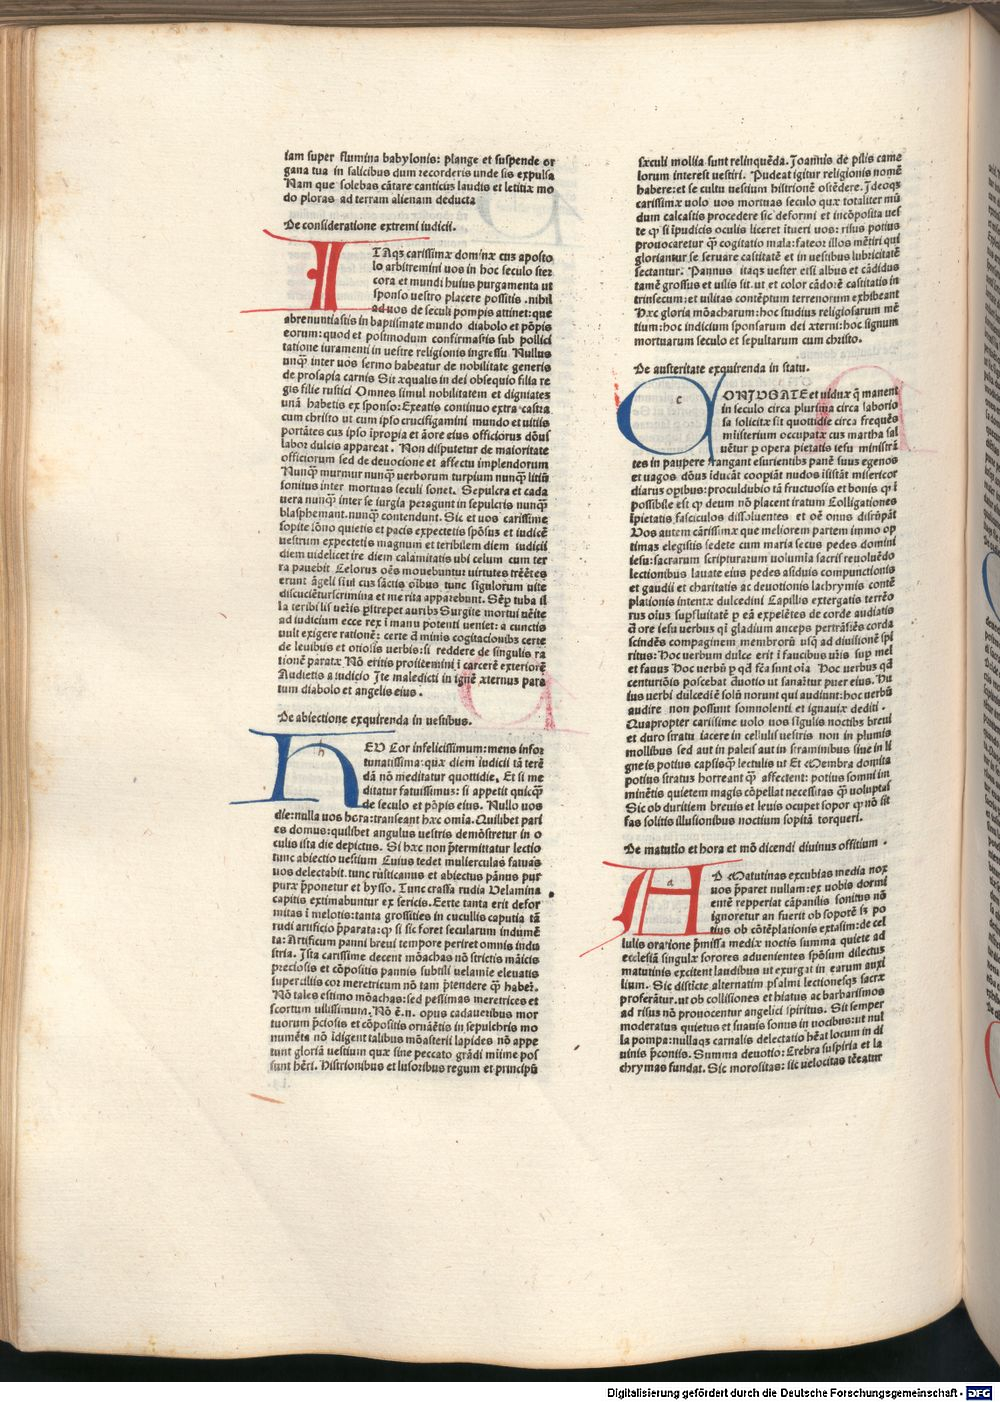 iam super flumina babylonis: plange et suspende or
gana tua in salicibus dum recorderis unde sis expulsa
Nam que solebas cātare canticus laudis et letitiæ mo
do ploras ad terram alienam deducta
De consideratione extremi iudicii.
ITAqз carissimæ dominæ cus aposto
lo arbitremini uos in hoc seculo ster
cora et mundi huius purgamenta ut
sponso uestro placere possitis . nihil
ad uos de seculi pompis attinet: que
abrenuntiastis in baptismate mundo diabolo et pōpis
eorum: quod et postmodum confirmastis sub pollici
tatione iuramenti in uestre religionis ingressu. Nullus
unq̄ inter uos sermo habeatur de nobilitate generis
de prosapia carnis Sit æqualis in dei obsequio filia re
gis filie rustici Omnes simul nobilitatem et dignitates
unā habetis ex sponso: Exeatis continuo extra castra
cum christo ut cum ipso crucifigamini mundo et uitiis
portātes cus ipso īpropia et āore eius officiorus dōus
labor dulcis appareat . Non disputetur de maioritate
officiorum sed de deuocione et affectu implendorum
Nunq̄ murmur nunq̄ uerborum turpium nunq̄ litiū
sonitus inter mortuas seculi sonet. Sepulcra et cada
uera nunq̄ inter se iurgia peragunt in sepulcris nunq̄
blasphemant. nunq̄ contendunt. Sic et uos carissime
sopite sōno quietis et pacis expectetis spōsus et iudicē
uestrum expectetis magnum et teribilem diem iudicii
diem uidelicet ire diem calamitatis ubi celum cum ter
ra pauebit Celorus oēs mouebuntur uirtutes trēētes
erunt āgeli siūl cus sāctis oībus tunc sīgulorum uite
discuciēturscrimina et merita apparebunt. Sēp tuba il
la teribilis uēris p̄strepet auribs Surgite mortui uēite
ad iudicium ecce rex ī manu potenti ueniet: a cunctis
uult exigere rationē: certe d̄ minis cogitacionibs certe
de leuibus et otiosis uerbis: si reddere de singulis ra
tionē paratæ Nō eritis proiitemini ī carcerē exteriorē
Audietis a iudicio Ite maledicti in ignē æternus para
tum diabolo et angelis eius .
De abiectione exquirenda in uestibus.
h
HEV Cor infelicissimum: mens infor
tunatissima: quæ diem iudicii tā terē
dā nō meditatur quottidie. Et si me
ditatur fatuissimus: si appetit quicq̄
de seculo et pōpis eius. Nullo uos
die: nulla uos hora: transeant hæc omīa. Quilibet pari
es domus: quilibet angulus uestris demōstretur in o
culis ista die depictus. Si hæc non p̄termittatur lectio
tunc abiectio uestium Cuius tedet mulierculas fatuas
uos delectabit. tunc rusticanus et abiectus pānus pur
puræ p̄ponetur et bysso. Tunc crassa rudia Velamina
capitis extimabuntur ex sericis. Certe tanta erit defor
mitas ī melotis: tanta grossities in cucullis caputia tā
rudi artificio p̄parata: qͻ si sic foret secularum indumē
ta: Artificum panni breui tempore periret omnis indu
stria. Ista carissime decent mōachas nō strictis māicis
preciosis et cōpositis pannis subtili uelamīe eleuatis
superciliis coz meretricum nō tam p̄tendere q̄ habēr.
Nō tales estimo mōachas: sed pessimas meretrices et
scortum uilissimum. Nō ē.n. opus cadaueribus mor
tuorum p̄ciosis et cōpositis ornāētis in sepulchris mo
numēta nō īdigent talibus mōasterii lapides nō appe
tunt gloriā uestium quæ sine peccato grādi mīime pos
sunt hēri. Histrionibus et lusoribus regum et principū
sæculi mollia sunt relinquēda. Joannis de pilis came
lorum interest uestiri. Pudeat igitur religionis nomē
habere: et se cultu uestium histrionē ostēdere. Ideoqз
carissimæ uolo uos mortuas seculo quæ totaliter mū
dum calcastis procedere sic deformi et incōposita ues
te qͻ si īpudicis oculis liceret ītueri uos: risus potius
prouocaretur q̄ cogitatio mala: fateor illos mētiri qui
gloriantur se seruare castitatē et in uestibus lubricitatē
sectantur. Pannus itaqз uester etsi albus et cādidus
tamē grossus et uilis sit. ut et color cādorē castitatis in
trinsecum: et uilitas contēptum terrenorum exhibeant
Hæc gloria mōacharum: hoc studius religiosarum mē
tium: hoc indicium sponsarum dei æterni: hoc signum
mortuarum seculo et sepultarum cum christo.
De austeritate exquirenda in statu.
c
CONJVGATE et uiduæ q̄ manent
in seculo circa plurima circa laborio
sa solicitæ sīt quottidie circa frequēs
mīisterium occupatæ cus martha sal
uētur p opera pietatis iesu ministrā
tes in paupere frangant esurientibs panē suus egenos
et uagos dōus īducāt coopiāt nudos īsistāt misericor
diarus opibus: proculdubio tā fructuosis et bonis qͻ ī
possibile est qͻ deum nō placent iratum Colligationes
īpietatis fasciculos dissoluentes et oē onus disrūpāt
Vos autem cārissimæ que meliorem partem immo op
timas elegistis sedete cum maria secus pedes domini
iesu: sacrarum scripturarum uolumīa sacris reuoluēdo
lectionibus lauate eius pedes asiduis compunctionis
et gaudii et charitatis ac deuotionis lachrymis contē
plationis intentæ dulcedini Capillis extergatis terrēo
rus oīus supfluitatē p eā expelētes de corde audiatis
d̄ ore iesu uerbus qī gladium anceps pertrāsīēs corda
scindēs compaginem membrorū usq̄ ad diuisionē spi
ritus: Hoc uerbum dulce erit ī faucibus uris sup mel
et fauus Hoc uerbū p qd̄ fcā sunt oīa Hoc uerbus qd̄
centuriōis poscebat d̄uotio ut sanaretur puer eius. Hu
ius uerbi dulcediē solū norunt qui audiunt: hoc uerbū
audire non possunt somnolenti et ignauiæ dediti .
Quapropter carissime uolo uos sīgulis noctibs breui
et duro stratu iacere in cellulis uestris non in plumis
mollibus sed aut in paleis aut in straminibus siue in li
gneis potius capisq̄ lectulis ut Et Membra domita
potius stratus horreant q̄ affectent: potius somni im
minētis quietem magis cōpellat necessitas q̄ uoluptas
Sic ob duritiem breuis et leuis ocupet sopor qͻ nō sit
fas solitis illusionibus noctium sopitā torqueri.
De matutio et hora et mō dicendi diuinus offitium .
a
AD Matutinas excubias media nox
uos p̄paret nullam: ex uobis dormi
entē repperiat cāpanilis sonitus nō
ignoretur an fuerit ob soporē iз po
tius ob cōtēplationis extasim: de cel
lulis oratione p̄missa mediæ noctis summa quiete ad
ecclesiā singulæ sorores aduenientes spōsum dilectus
matutinis excitent laudibus ut exurgat in earum auxi
lium. Sic distīcte alternatim psalmi lectionesqз sacræ
proferātur. ut ob collisiones et hiatus ac barbarismos
ad risus nō pronocentur angelici spiritus. Sit semper
moderatus quietus et suauis sonus in uocibus: ut nul
la pompa: nullaqз carnalis delectatio hēat locum in di
uinis p̄coniis. Summa deuotio: Crebra suspiria et la
chrymas fundat. Sic morositas: sic uelocitas tēeatur
Digitalisierung gefördert durch die Deutsche Forschungsgemeinschaft - DFG